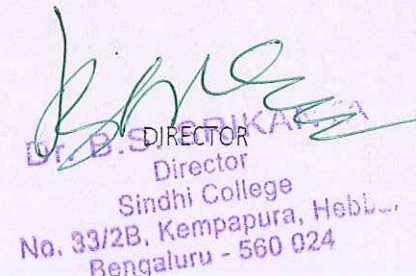 DIRECTOR
Dr. B.S.
Director
Sindhi College
No. 33/2B, Kempapura,
Bengaluru - 560 024